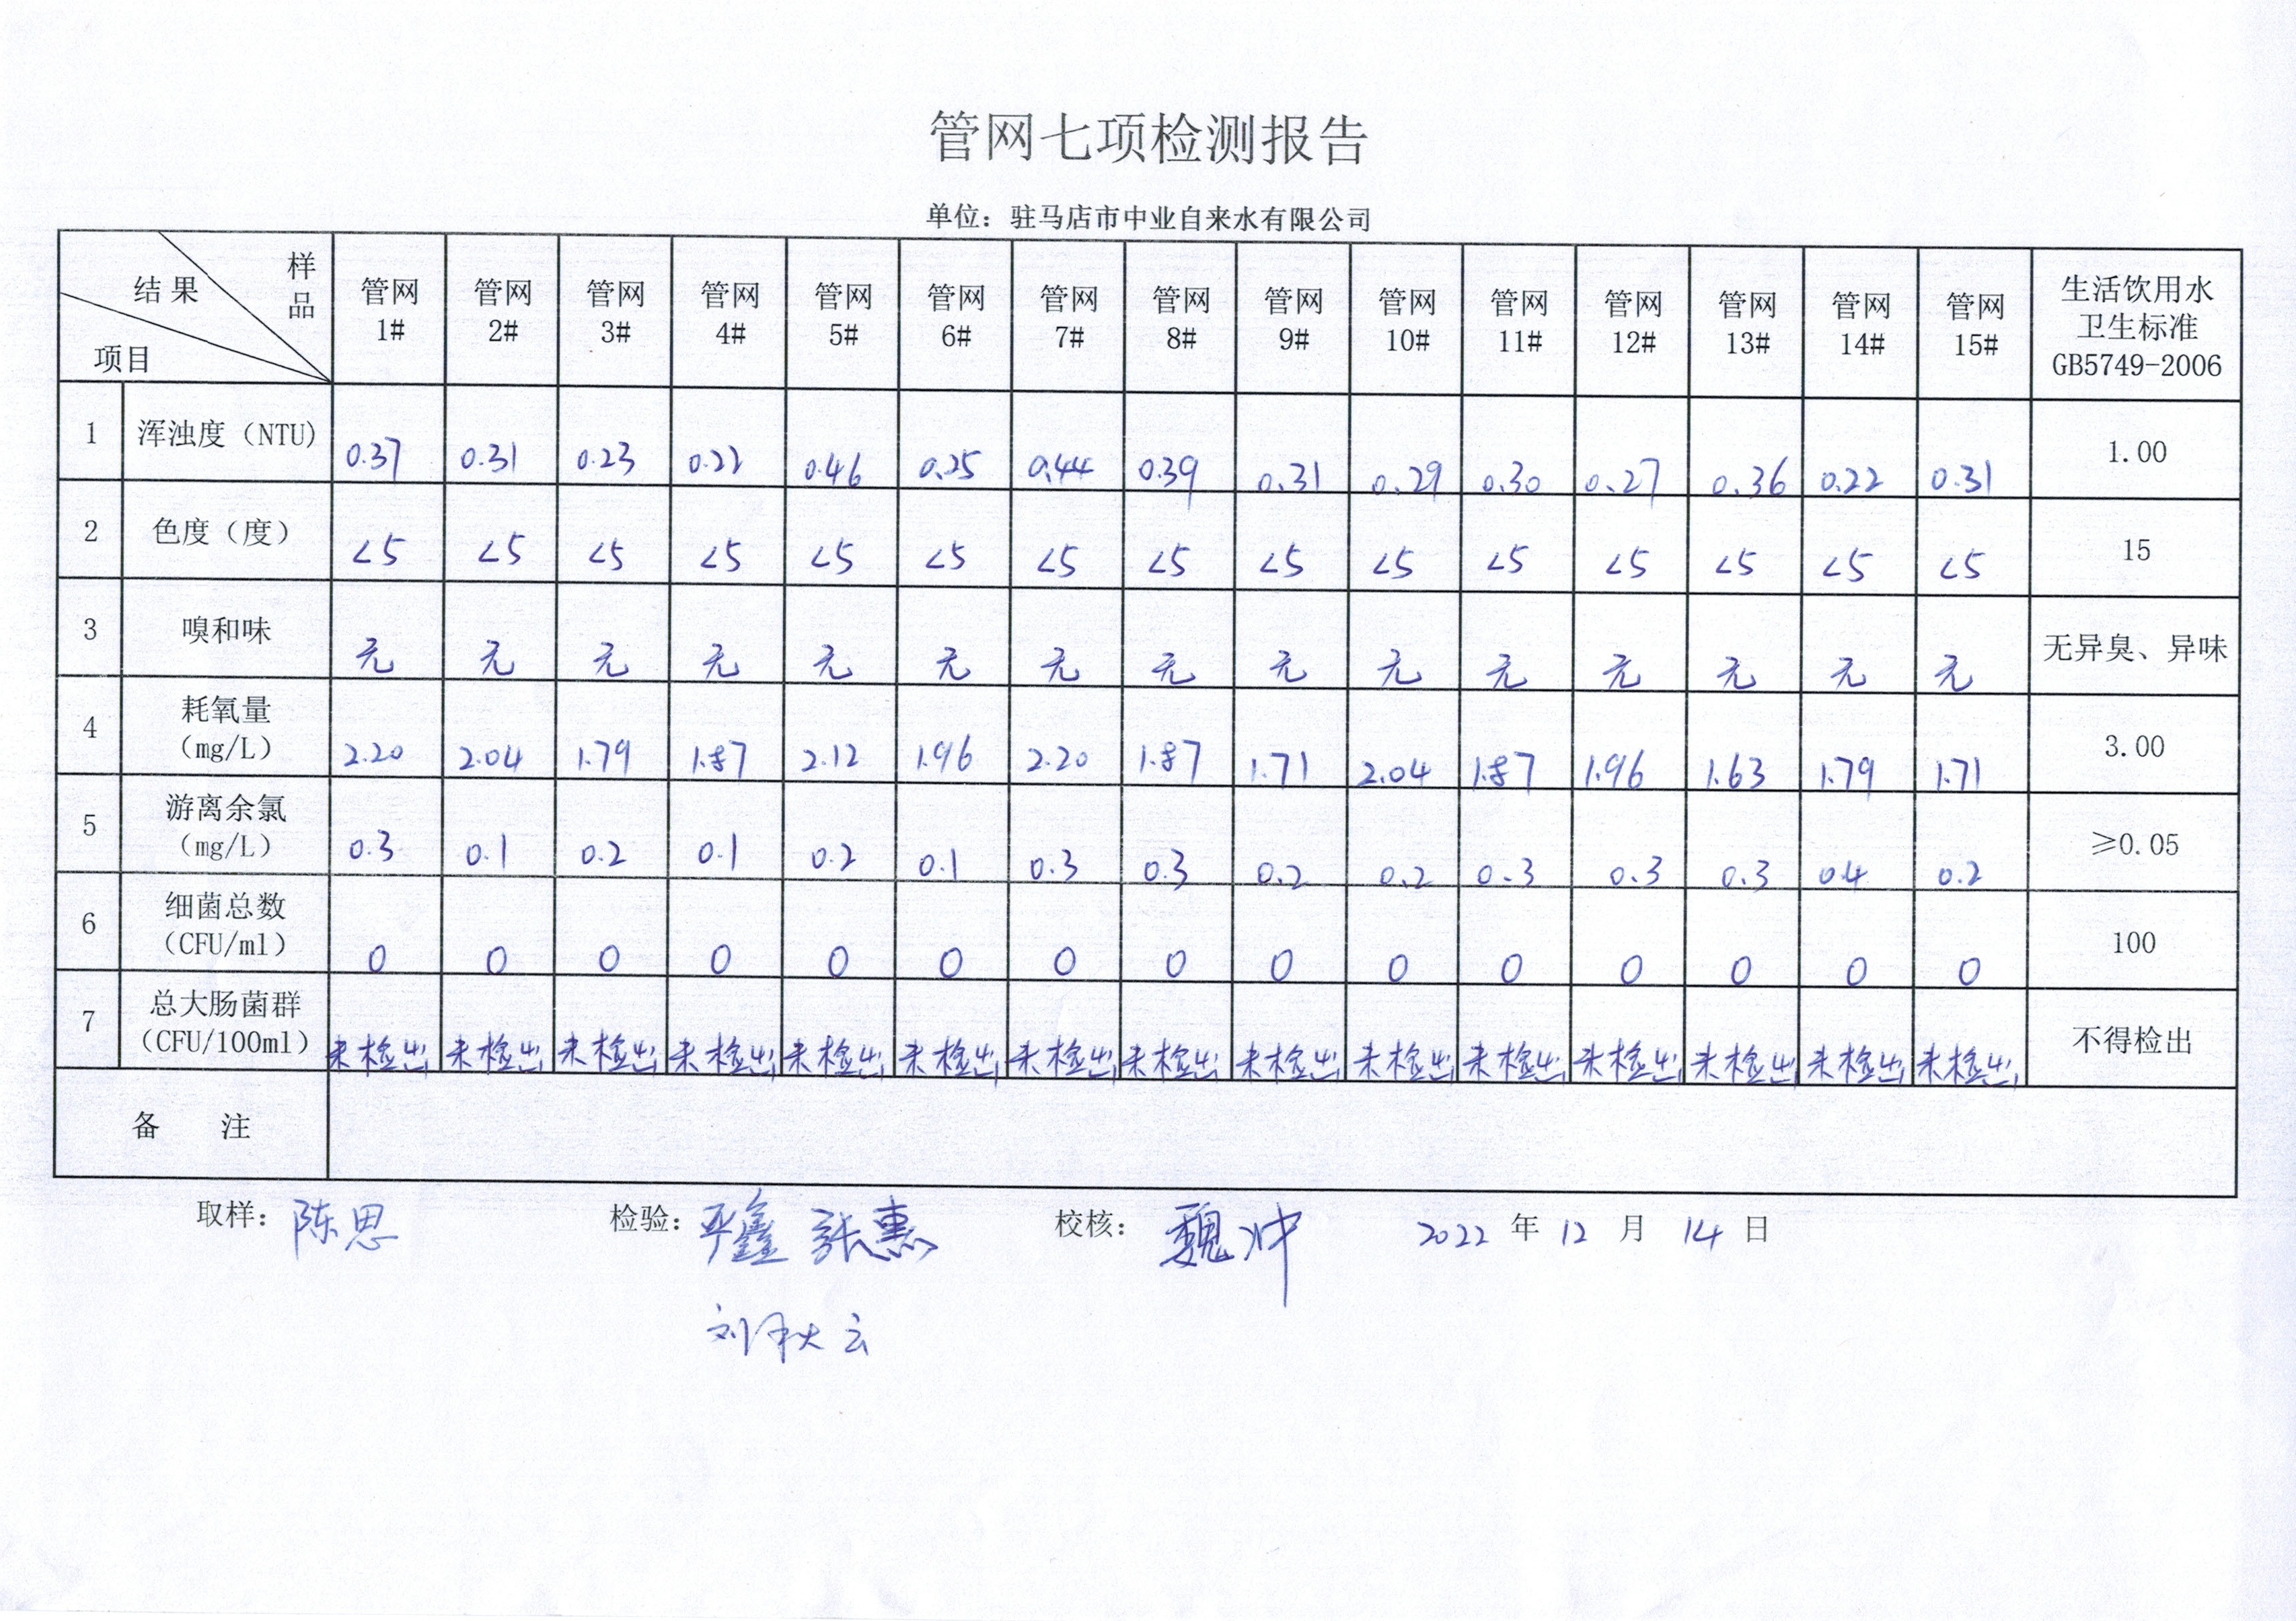 管网七项检测报告
单位：驻马店市中业自来水有限公司
结果 样品 项目 管网1# 管网2# 管网3# 管网4# 管网5# 管网6# 管网7# 管网8# 管网9# 管网10# 管网11# 管网12# 管网13# 管网14# 管网15# 生活饮用水卫生标准GB5749-2006
1 浑浊度（NTU） 0.37 0.31 0.23 0.22 0.46 0.25 0.44 0.39 0.31 0.29 0.30 0.27 0.36 0.22 0.31 1.00
2 色度（度） <5 <5 <5 <5 <5 <5 <5 <5 <5 <5 <5 <5 <5 <5 <5 15
3 嗅和味 无 无 无 无 无 无 无 无 无 无 无 无 无 无 无 无异臭、异味
4 耗氧量（mg/L） 2.20 2.04 1.79 1.87 2.12 1.96 2.20 1.87 1.71 2.04 1.87 1.96 1.63 1.79 1.71 3.00
5 游离余氯（mg/L） 0.3 0.1 0.2 0.1 0.2 0.1 0.3 0.3 0.2 0.2 0.3 0.3 0.3 0.4 0.2 ≥0.05
6 细菌总数（CFU/ml） 0 0 0 0 0 0 0 0 0 0 0 0 0 0 0 100
7 总大肠菌群（CFU/100ml） 未检出 未检出 未检出 未检出 未检出 未检出 未检出 未检出 未检出 未检出 未检出 未检出 未检出 未检出 未检出 不得检出
备 注
取样：陈思 检验：严鑫 张惠 校核：魏冲 2022 年 12 月 14 日
刘秋云